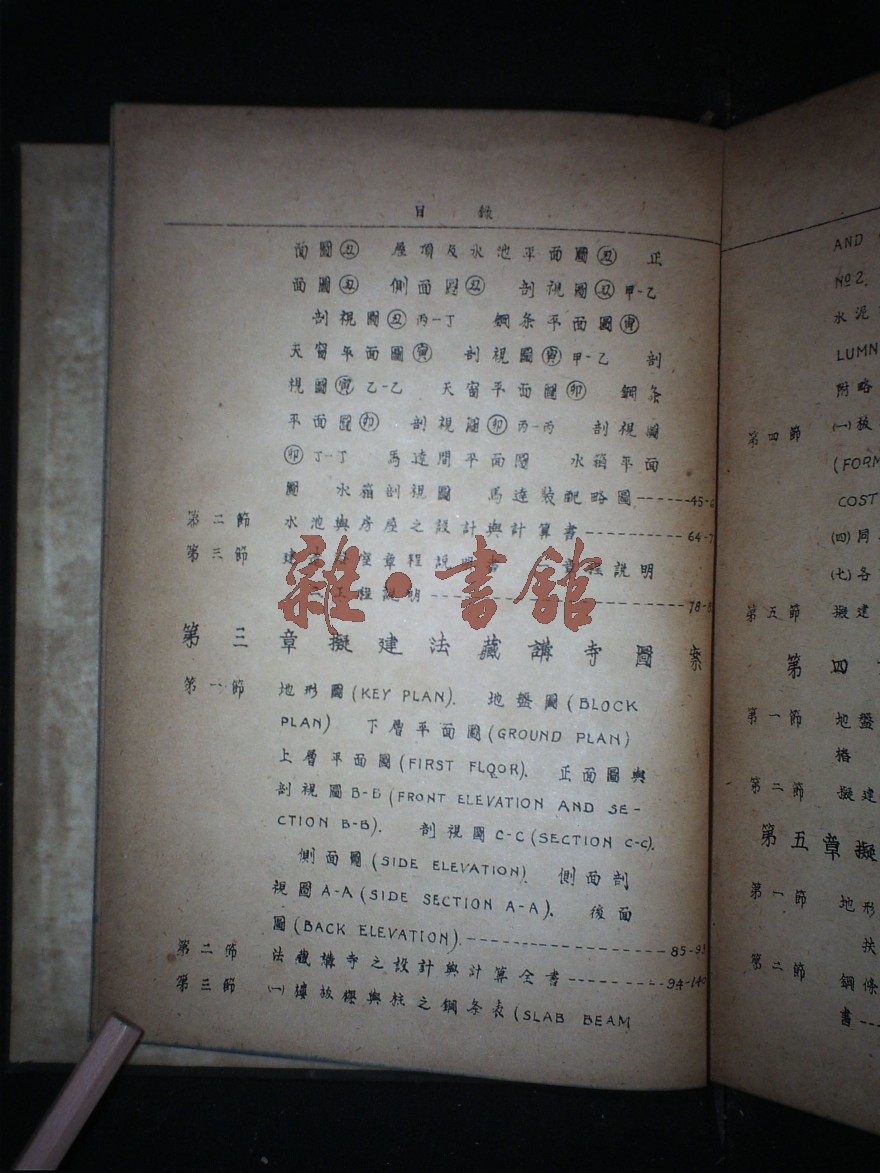 目 錄
面圖丑 屋頂及水池平面圖丑 正
面圖丑 側面圖丑 剖視圖丑甲-乙
剖視圖丑丙-丁 鋼条平面圖寅
天窗平面圖寅 剖視圖寅甲-乙 剖
視圖寅乙-乙 天窗平面圖卯 鋼条
平面圖卯 剖視圖卯丙-丙 剖視圖
卯丁-丁 馬達間平面圖 水箱平面
圖 水箱剖視圖 馬達裝配略圖------45-6
第二節 水池與房屋之設計與計算書----------64-7
第三節 章程說明
工程說明----------78-8
雜·書館
第三章擬建法藏講寺圖案
第一節 地形圖(KEY PLAN). 地盤圖(BLOCK
PLAN) 下層平面圖(GROUND PLAN)
上層平面圖(FIRST FLOOR). 正面圖與
剖視圖B-B(FRONT ELEVATION AND SE-
CTION B-B). 剖視圖C-C(SECTION C-C).
側面圖(SIDE ELEVATION). 側面剖
視圖A-A(SIDE SECTION A-A). 後面
圖(BACK ELEVATION).----------85-93
第二節 法藏講寺之設計與計算全書----------94-140
第三節 ㈠樓板樑與柱之鋼条表(SLAB BEAM
AND
№2.
水泥
LUMN
附略
第四節 ㈠板
(FORM
COST
㈣同
㈦各
第五節 擬建
第四
第一節 地盤
樁
第二節 擬建
第五章擬
第一節 地形
扶
第二節 鋼條
書---